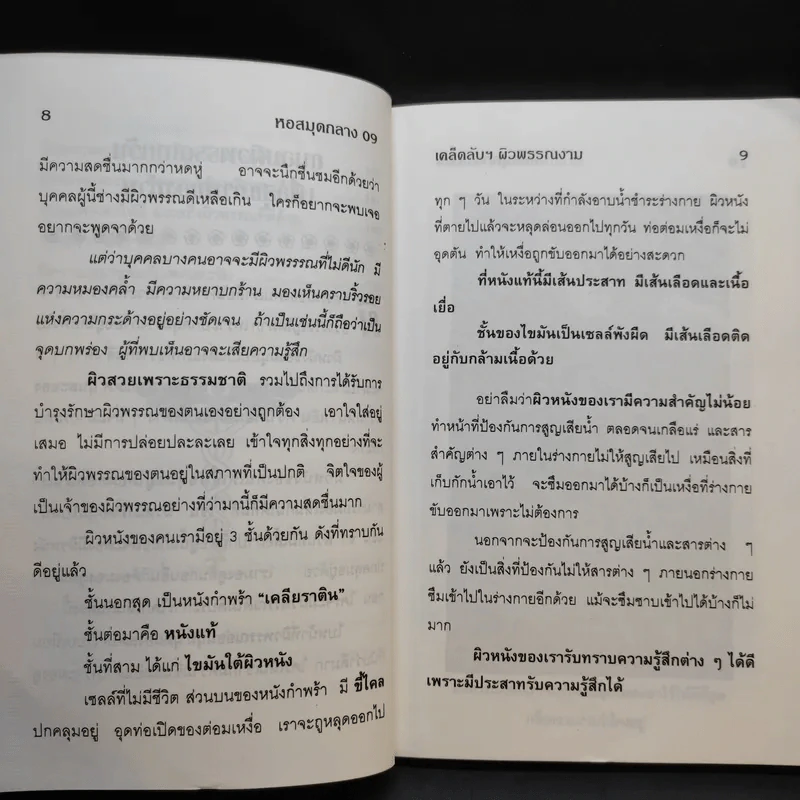 8
หอสมุดกลาง 09
มีความสดชื่นมากกว่าหดหู่ อาจจะนึกชื่นชมอีกด้วยว่า
บุคคลผู้นี้ช่างมีผิวพรรณดีเหลือเกิน ใครก็อยากจะพบเจอ
อยากจะพูดจาด้วย
แต่ว่าบุคคลบางคนอาจจะมีผิวพรรรณที่ไม่ดีนัก มี
ความหมองคล้ำ มีความหยาบกร้าน มองเห็นคราบริ้วรอย
แห่งความกระด้างอยู่อย่างชัดเจน ถ้าเป็นเช่นนี้ก็ถือว่าเป็น
จุดบกพร่อง ผู้ที่พบเห็นอาจจะเสียความรู้สึก
ผิวสวยเพราะธรรมชาติ รวมไปถึงการได้รับการ
บำรุงรักษาผิวพรรณของตนเองอย่างถูกต้อง เอาใจใส่อยู่
เสมอ ไม่มีการปล่อยปละละเลย เข้าใจทุกสิ่งทุกอย่างที่จะ
ทำให้ผิวพรรณของตนอยู่ในสภาพที่เป็นปกติ จิตใจของผู้
เป็นเจ้าของผิวพรรณอย่างที่ว่ามานี้ก็มีความสดชื่นมาก
ผิวหนังของคนเรามีอยู่ 3 ชั้นด้วยกัน ดังที่ทราบกัน
ดีอยู่แล้ว
ชั้นนอกสุด เป็นหนังกำพร้า “เคลียราติน”
ชั้นต่อมาคือ หนังแท้
ชั้นที่สาม ได้แก่ ไขมันใต้ผิวหนัง
เซลล์ที่ไม่มีชีวิต ส่วนบนของหนังกำพร้า มี ขี้ไคล
ปกคลุมอยู่ อุดท่อเปิดของต่อมเหงื่อ เราจะถูหลุดออกไป
เคล็ดลับฯ ผิวพรรณงาม
9
ทุก ๆ วัน ในระหว่างที่กำลังอาบน้ำชำระร่างกาย ผิวหนัง
ที่ตายไปแล้วจะหลุดล่อนออกไปทุกวัน ท่อต่อมเหงื่อก็จะไม่
อุดตัน ทำให้เหงื่อถูกขับออกมาได้อย่างสะดวก
ที่หนังแท้นี้มีเส้นประสาท มีเส้นเลือดและเนื้อ
เยื่อ
ชั้นของไขมันเป็นเซลล์พังผืด มีเส้นเลือดติด
อยู่กับกล้ามเนื้อด้วย
อย่าลืมว่าผิวหนังของเรามีความสำคัญไม่น้อย
ทำหน้าที่ป้องกันการสูญเสียน้ำ ตลอดจนเกลือแร่ และสาร
สำคัญต่าง ๆ ภายในร่างกายไม่ให้สูญเสียไป เหมือนสิ่งที่
เก็บกักน้ำเอาไว้ จะซึมออกมาได้บ้างก็เป็นเหงื่อที่ร่างกาย
ขับออกมาเพราะไม่ต้องการ
นอกจากจะป้องกันการสูญเสียน้ำและสารต่าง ๆ
แล้ว ยังเป็นสิ่งที่ป้องกันไม่ให้สารต่าง ๆ ภายนอกร่างกาย
ซึมเข้าไปในร่างกายอีกด้วย แม้จะซึมซาบเข้าไปได้บ้างก็ไม่
มาก
ผิวหนังของเรารับทราบความรู้สึกต่าง ๆ ได้ดี
เพราะมีประสาทรับความรู้สึกได้